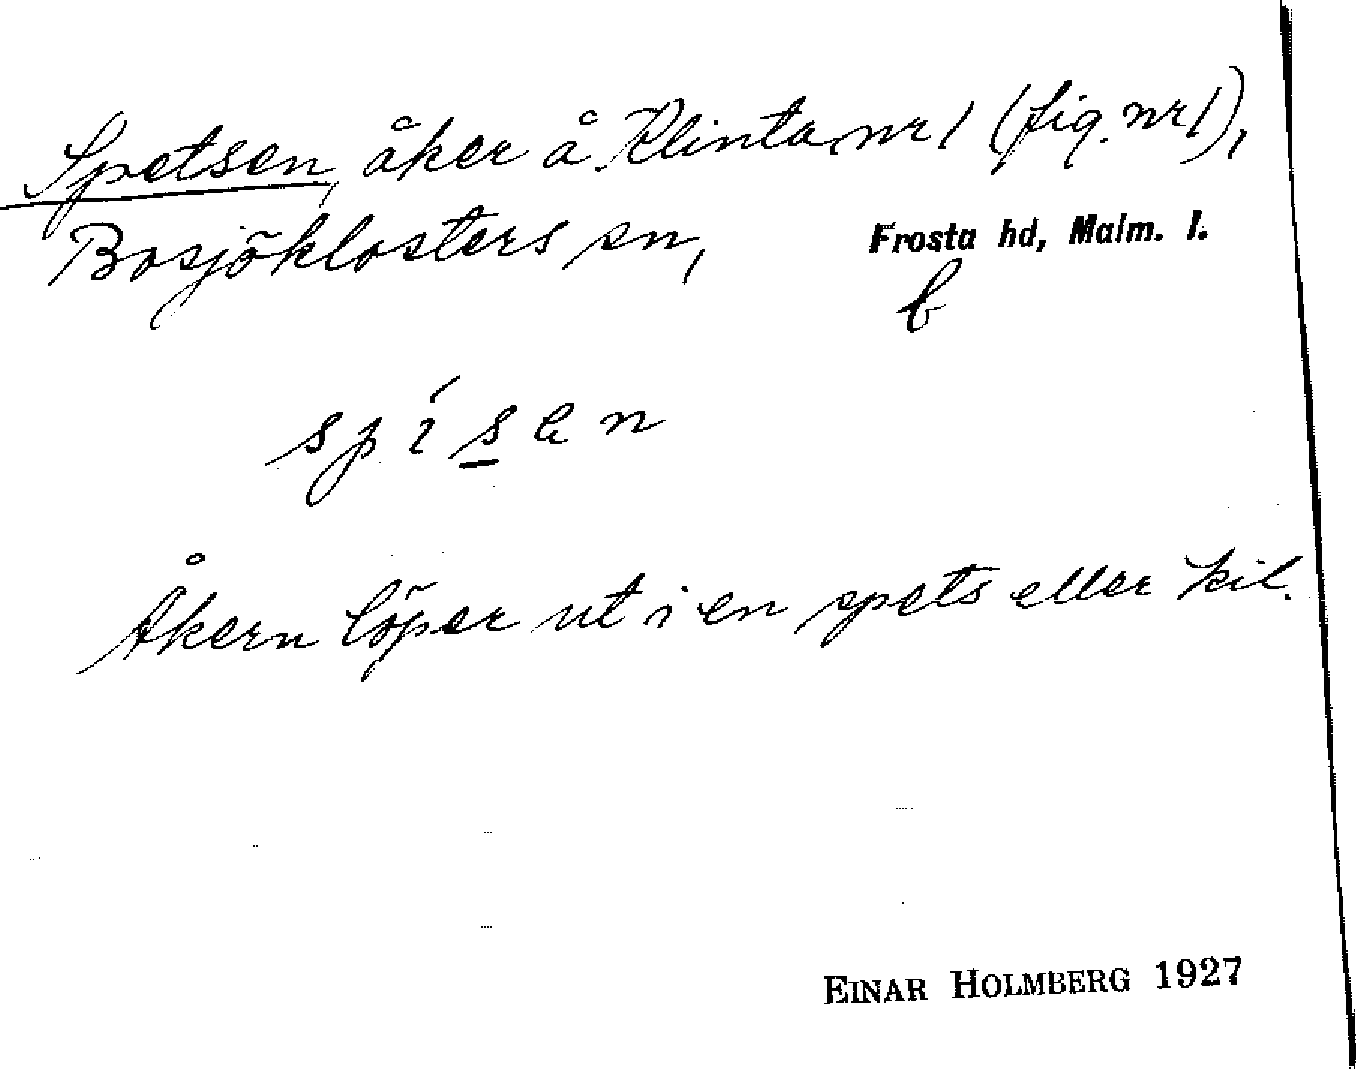 Spetsen, åker å Klinta nr 1 (fig. nr 1),
Bosjöklosters sn, Frosta hd, Malm. l.
b
spísen
Åkern löper ut i en spets eller kil.
EINAR HOLMBERG 1927